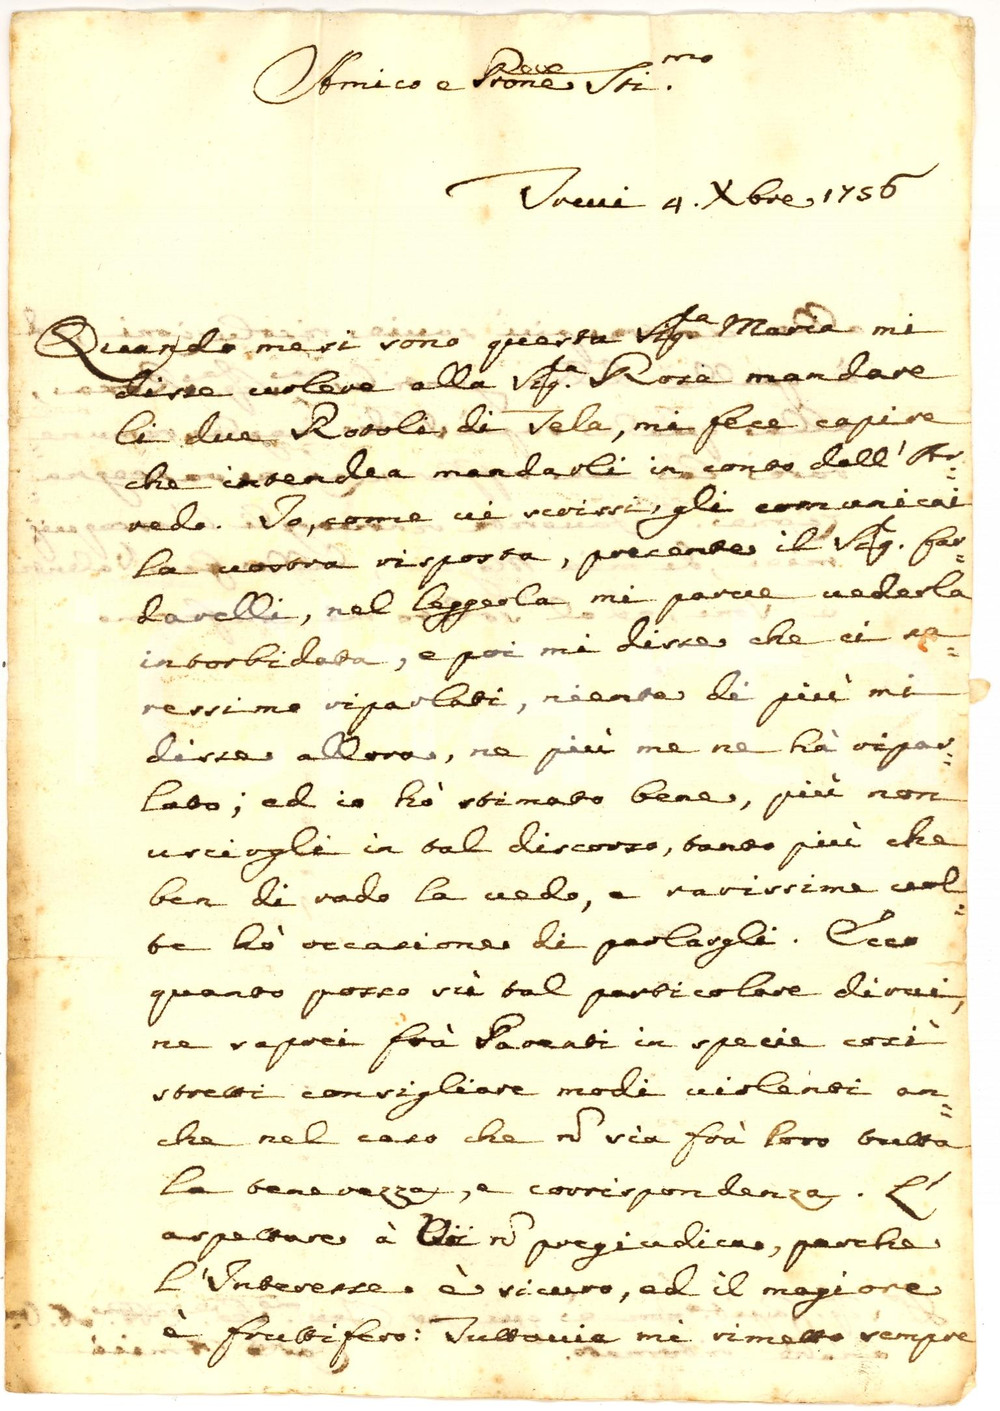 Amico e Prone Sti.mo
Trevi 4. Xbre 1756
Quando mesi sono questa Sig.ra Maria mi
disse volere alla Sig.ra Rosa mandare
li due Rotoli di Tela, mi fece capire
che intendea mandarli in conto dell'Ar=
redo. Io, come vi scrissi, gli comunicai
la vostra risposta, presente il Sig. far=
darelli, nel leggerla mi parve vederla
intorbidata, e poi mi disse che ci sa=
ressimo riparlati, niente di più mi
disse allora, ne più me ne hà ripar=
lato; ed io hò stimato bene, più non
uscirgli in tal discorso, tanto più che
ben di rado la vedo, e rarissime vol=
te hò occasione di parlargli. Ecco
quanto posso sù tal particolare dirvi,
ne saprei frà Parenti in specie così
stretti consigliare modi violenti an=
che nel caso che ñ sia frà loro tutta
la tenerezza, e corrispondenza. L'
aspettare à ñ pregiudica, perche
l'Interesse è sicuro, ed il magiore
è fruttifero: Tuttavia mi rimetto sempre